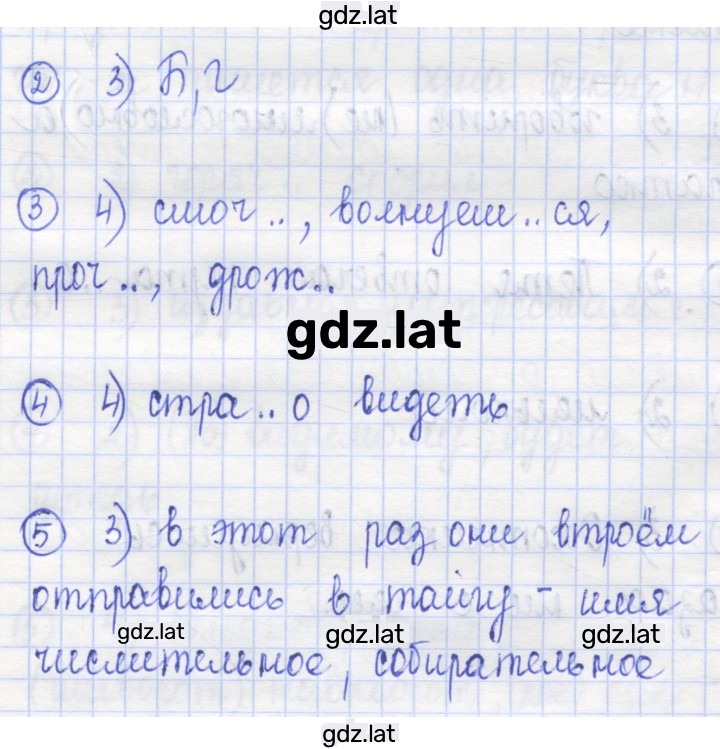 gdz.lat
② 3) Б, г
③ 4) смоч .. , волнуеш .. ся,
проч .. , дрож ..
gdz.lat
④ 4) стра .. о видеть
⑤ 3) в этот раз они втроём
отправились в тайгу - имя
gdz.lat gdz.lat gdz.lat
числительное, собирательное
gdz.lat